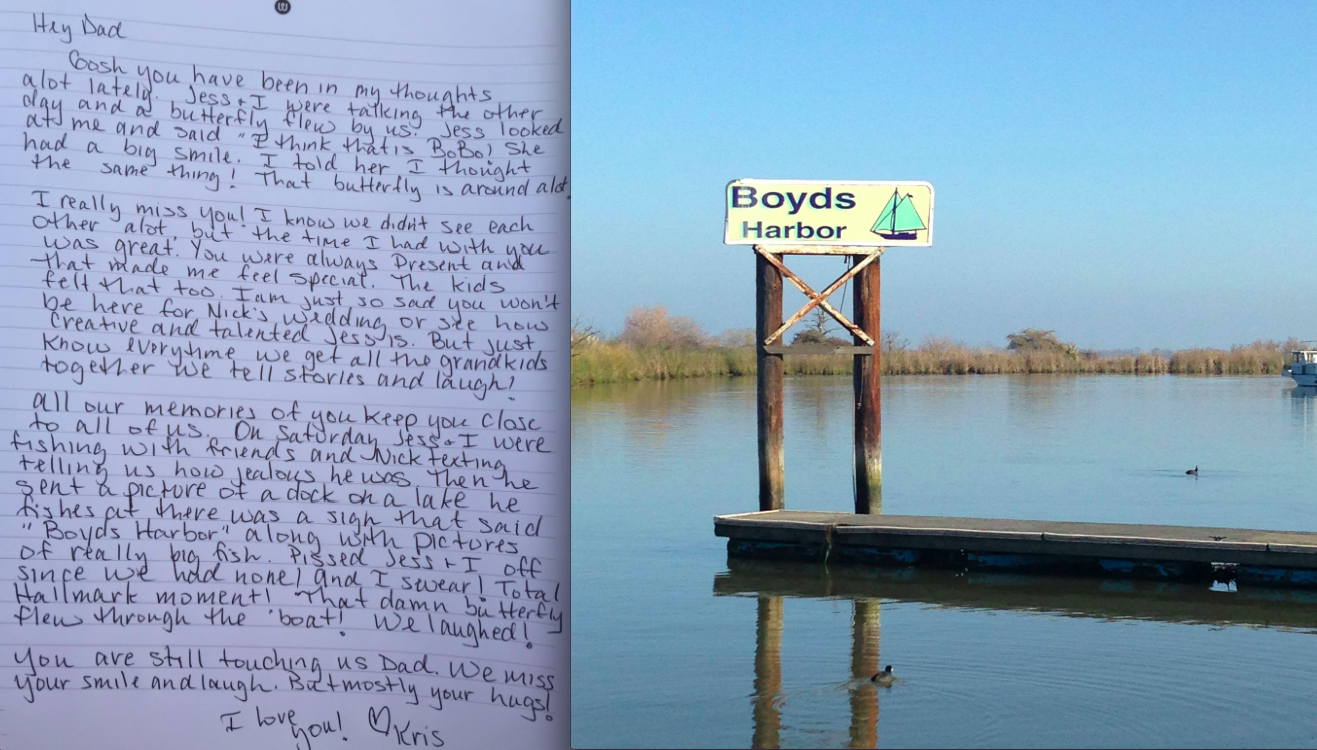 Hey Dad
Gosh you have been in my thoughts
alot lately. Jess + I were talking the other
day and a butterfly flew by us. Jess looked
at me and said "I think that is BoBo! She
had a big smile. I told her I thought
the same thing! That butterfly is around alot.
I really miss you! I know we didn't see each
other alot, but the time I had with you
was great. You were always Present and
that made me feel special. The kids
felt that too. I am just so sad you won't
be here for Nick's wedding or see how
Creative and talented Jess is. But just
Know everytime we get all the grandkids
together we tell stories and laugh!
all our memories of you keep you close
to all of us. On Saturday Jess + I were
fishing with friends and Nick texting
telling us how jealous he was. Then he
sent a picture of a dock on a lake he
fishes at there was a sign that said
"Boyds Harbor" along with pictures
of really big fish. Pissed Jess + I off
since we had none! And I swear! Total
Hallmark moment! That damn butterfly
flew through the boat! We laughed!
You are still touching us Dad. We miss
your smile and laugh. But mostly your hugs!
I love
you! ♡Kris
Boyds
Harbor